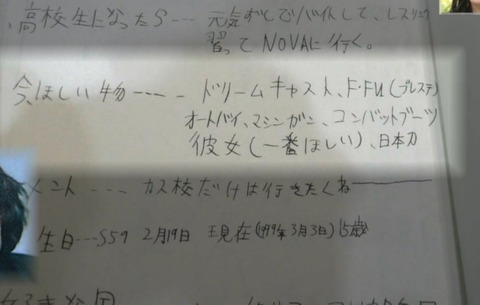 高校生になったら--- 元気ずしでバイトして、レスリング
習ってNOVAに行く。
今、ほしい物---- ドリームキャスト、F・FⅧ(プレステ)
オートバイ、マシンガン、コンバットブーツ
彼女(一番ほしい)、日本刀
メント---- カス校だけは行きたくねー
生日---S59 2月19日 現在(1999年3月3日)15歳
好きな